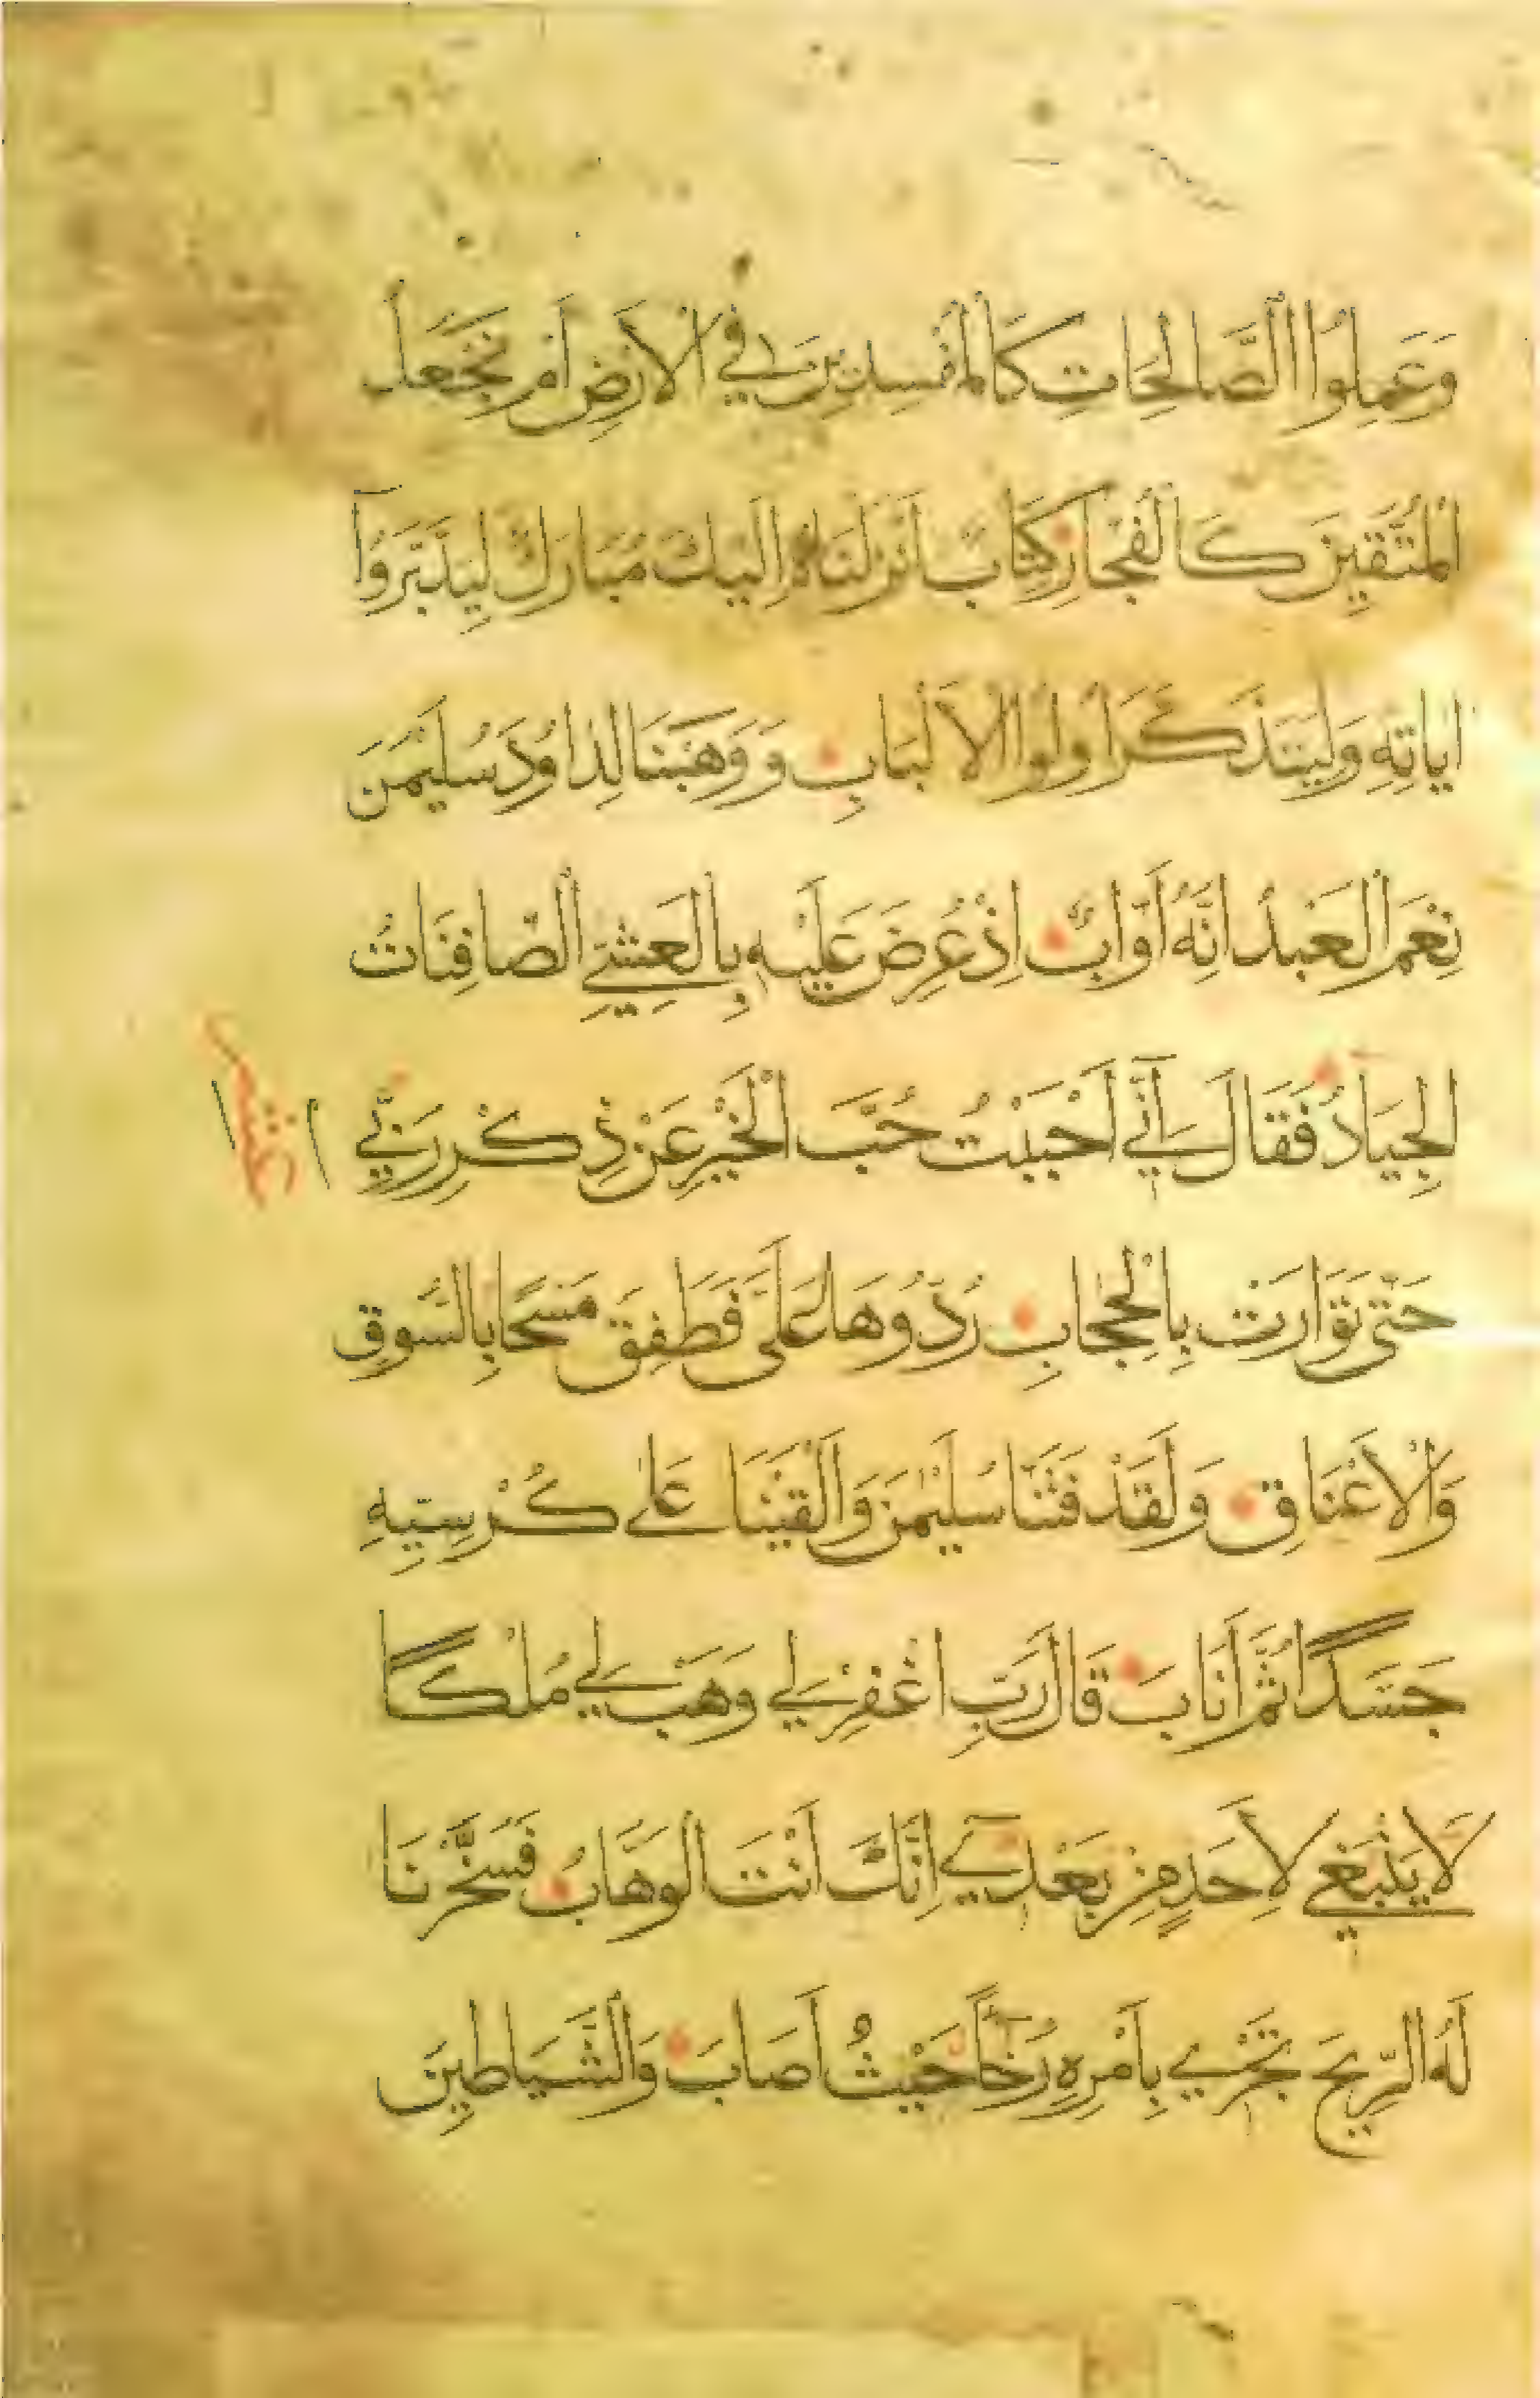 وَعَمِلُوا الصَّالِحَاتِ كَالْمُفْسِدِينَ فِي الْاَرْضِ اَمْ نَجْعَلُ
الْمُتَّقِينَ كَالْفُجَّارِ كِتَابٌ اَنْزَلْنَاهُ اِلَيْكَ مُبَارَكٌ لِيَدَّبَّرُوٓا
اٰيَاتِهِ وَلِيَتَذَكَّرَ اُولُوا الْاَلْبَابِ وَوَهَبْنَا لِدَاوُدَ سُلَيْمٰنَ
نِعْمَ الْعَبْدُ اِنَّهُ اَوَّابٌ اِذْ عُرِضَ عَلَيْهِ بِالْعَشِيِّ الصَّافِنَاتُ
الْجِيَادُ فَقَالَ اِنِّيٓ اَحْبَبْتُ حُبَّ الْخَيْرِ عَنْ ذِكْرِ رَبِّي
حَتّٰى تَوَارَتْ بِالْحِجَابِ رُدُّوهَا عَلَىَّ فَطَفِقَ مَسْحًا بِالسُّوقِ
وَالْاَعْنَاقِ وَلَقَدْ فَتَنَّا سُلَيْمٰنَ وَاَلْقَيْنَا عَلٰى كُرْسِيِّهِ
جَسَدًا ثُمَّ اَنَابَ قَالَ رَبِّ اغْفِرْ لِي وَهَبْ لِي مُلْكًا
لَا يَنْبَغِي لِاَحَدٍ مِنْ بَعْدِيٓ اِنَّكَ اَنْتَ الْوَهَّابُ فَسَخَّرْنَا
لَهُ الرِّيحَ تَجْرِي بِاَمْرِهِ رُخَآءً حَيْثُ اَصَابَ وَالشَّيَاطِينَ